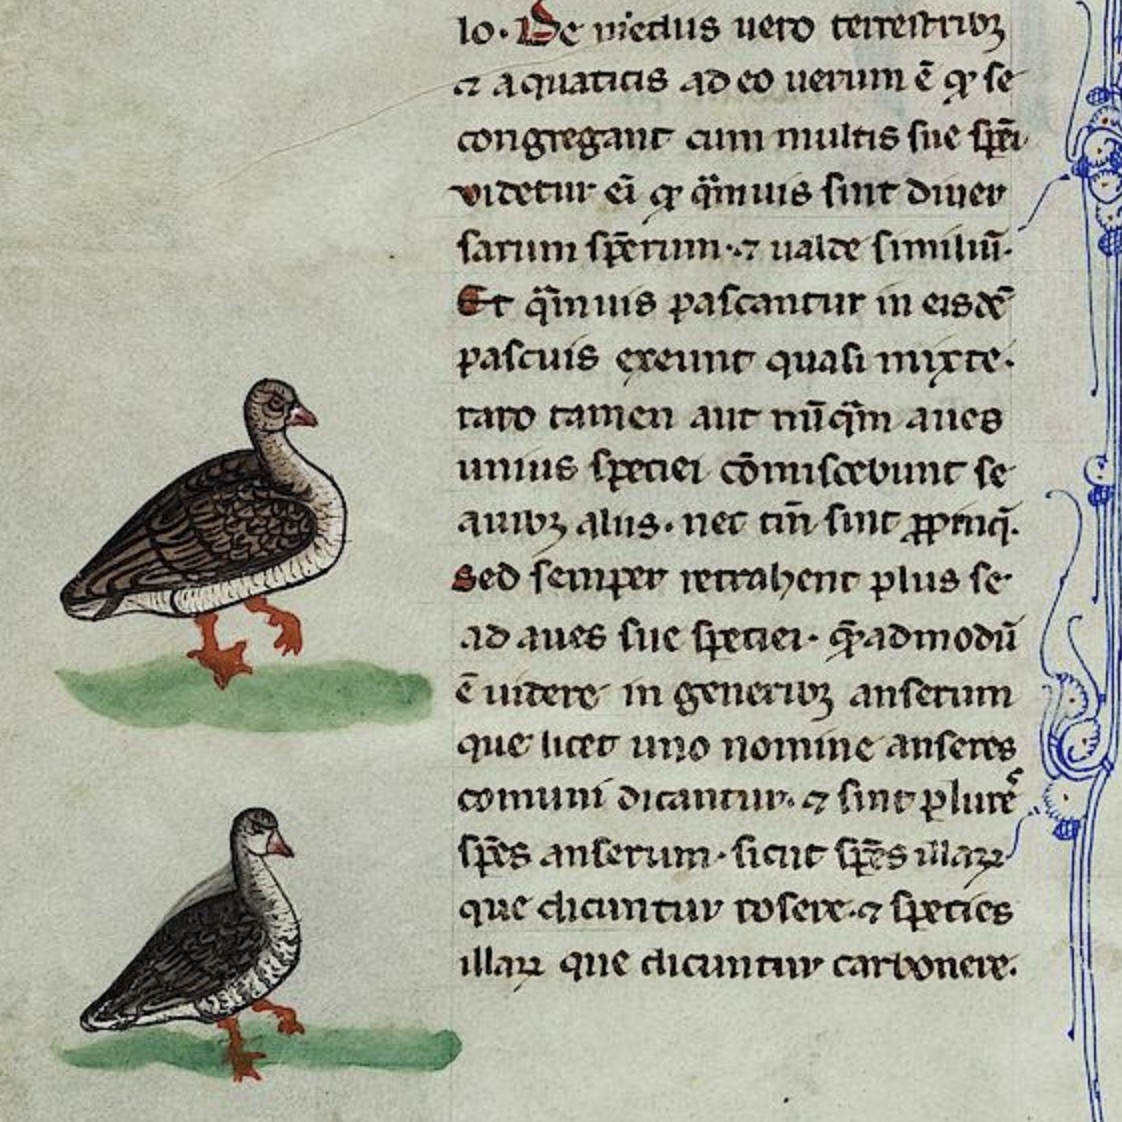 lo. De mediis uero terrestribꝫ
⁊ aquaticis adeo uerum ē qͥ se
congregant cum multis sue spēi
videtur eī qͥ qͣ̄muis sint diuer
sarum spērum. ⁊ ualde similiū.
Et qͣ̄muis pascantur in eisdē
pascuis exeunt quasi mixte.
raro tamen aut nūqͣm aues
unius speciei cōmiscebunt se
auibꝫ aliis. nec tn̄ sint ꝓpinq̄.
Sed semper retrahent plus se
ad aues sue speciei. quēadmodū
ē uidere in generibꝫ anserum
que licet uno nomine anseres
comuni dicantur. ⁊ sint plures
spēs anserum. sicut spēs illaꝝ
que dicuntur rosere. ⁊ species
illaꝝ que dicuntur carbonere.